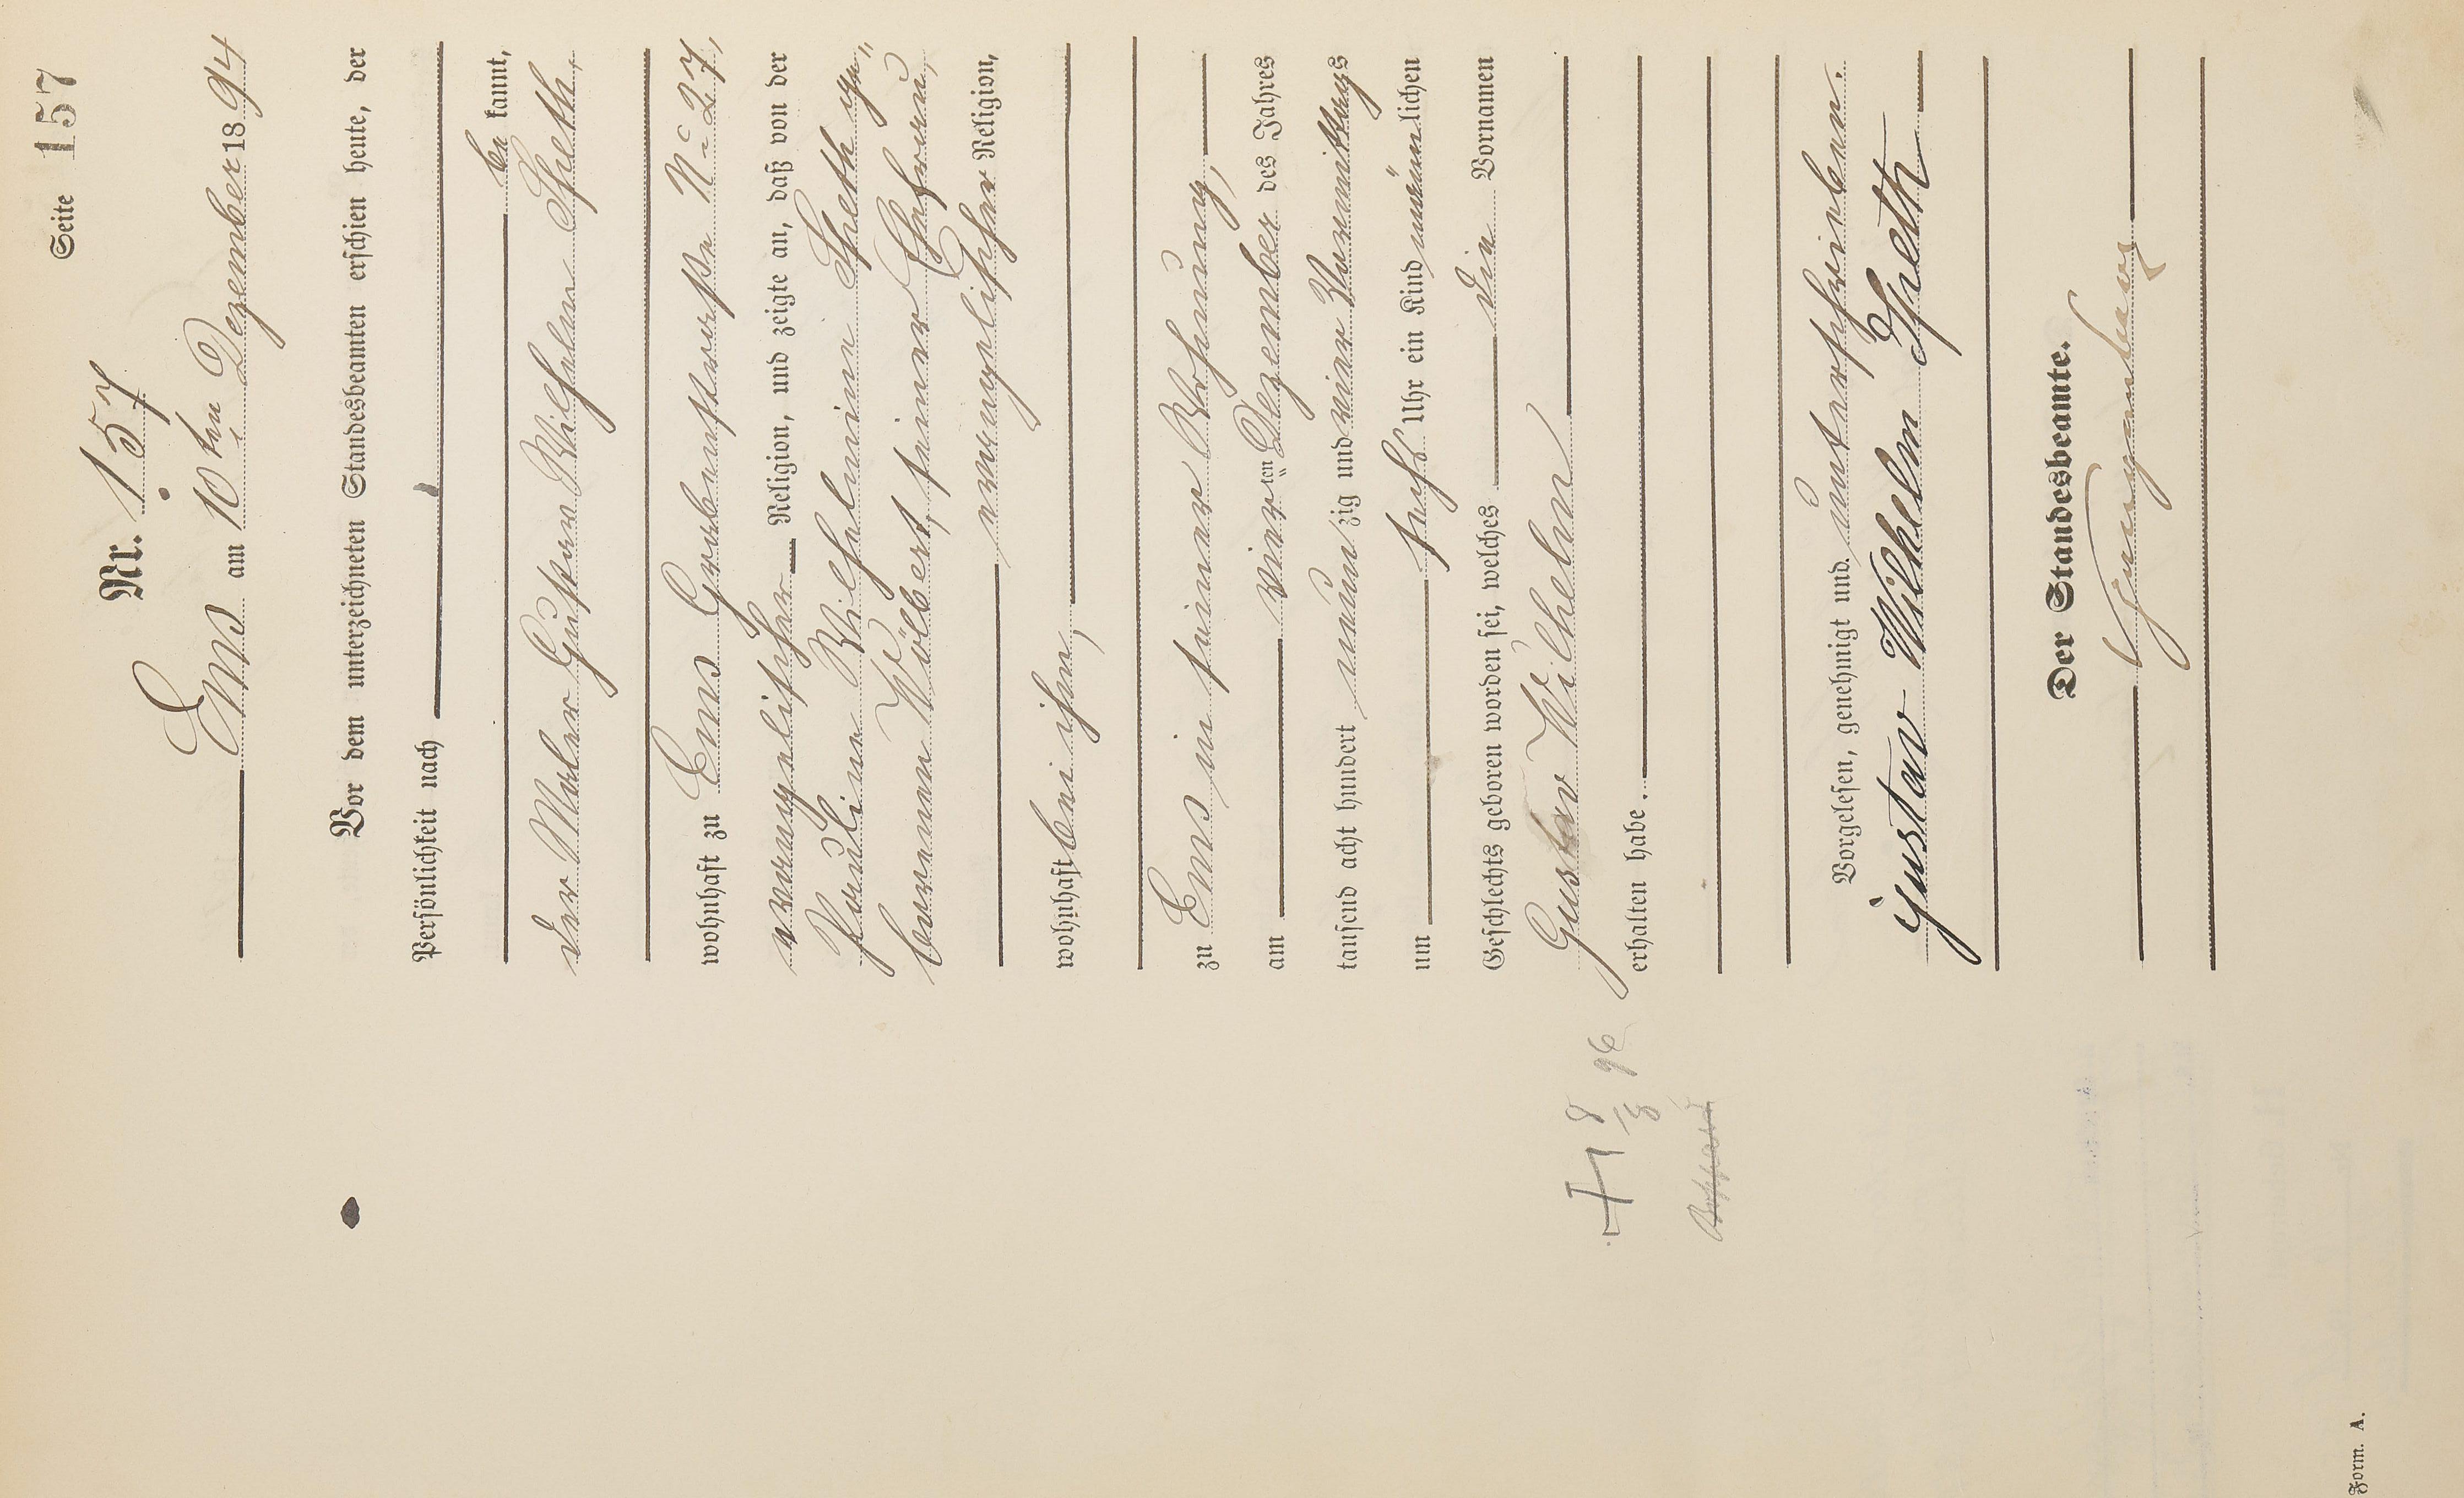 Seite 157
Nr. 157.
Ems am 10ten Dezember 1894
Vor dem unterzeichneten Standesbeamten erschien heute, der
Persönlichkeit nach
be kannt,
der Maler Gustav Wilhelm Theth,
wohnhaft zu Ems Grabenstraße No 27,
evangelischer Religion, und zeigte an, daß von der
Pauline Wilhelmine Theth ge„
borenen Wölbert, seiner Ehefrau,
evangelischer Religion,
wohnhaft bei ihm,
zu Ems in seiner Wohnung,
am vierten Dezember des Jahres
tausend acht hundert neunzig und vier Vormittags
um sechs Uhr ein Kind männlichen
Geschlechts geboren worden sei, welches die Vornamen
Gustav Wilhelm
erhalten habe.
Vorgelesen, genehmigt und unterschrieben.
Gustav Wilhelm Theth
Der Standesbeamte.
† 8/8 96
Form. A.